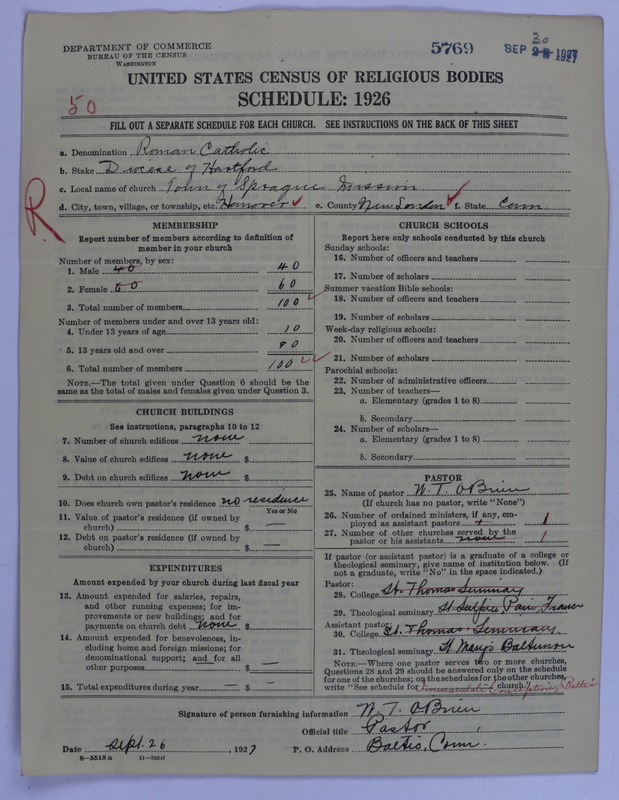 DEPARTMENT OF COMMERCE
BUREAU OF THE CENSUS
WASHINGTON
5769
SEP 1927
30
UNITED STATES CENSUS OF RELIGIOUS BODIES
SCHEDULE: 1926
50
FILL OUT A SEPARATE SCHEDULE FOR EACH CHURCH. SEE INSTRUCTIONS ON THE BACK OF THIS SHEET
a. Denomination Roman Catholic
b. Stake Diocese of Hartford
c. Local name of church Town of Sprague Mission
d. City, town, village, or township, etc. Hanover e. County New London f. State Conn.
R
MEMBERSHIP
Report number of members according to definition of
member in your church
Number of members, by sex:
1. Male 40 40
2. Female 60 60
3. Total number of members 100
Number of members under and over 13 years old:
4. Under 13 years of age 10
5. 13 years old and over 90
6. Total number of members 100
NOTE.—The total given under Question 6 should be the
same as the total of males and females given under Question 3.
CHURCH BUILDINGS
See instructions, paragraphs 10 to 12
7. Number of church edifices none
8. Value of church edifices none $
9. Debt on church edifices none $
10. Does church own pastor's residence no residence
Yes or No
11. Value of pastor's residence (if owned by
church) $ —
12. Debt on pastor's residence (if owned by
church) $ —
EXPENDITURES
Amount expended by your church during last fiscal year
13. Amount expended for salaries, repairs,
and other running expenses; for im-
provements or new buildings; and for
payments on church debt none $
14. Amount expended for benevolences, in-
cluding home and foreign missions; for
denominational support; and for all
other purposes — $ —
15. Total expenditures during year — $ —
CHURCH SCHOOLS
Report here only schools conducted by this church
Sunday schools:
16. Number of officers and teachers
17. Number of scholars
Summer vacation Bible schools:
18. Number of officers and teachers
19. Number of scholars
Week-day religious schools:
20. Number of officers and teachers
21. Number of scholars
Parochial schools:
22. Number of administrative officers
23. Number of teachers—
a. Elementary (grades 1 to 8)
b. Secondary
24. Number of scholars—
a. Elementary (grades 1 to 8)
b. Secondary
PASTOR
25. Name of pastor W. T. O'Brien
(If church has no pastor, write "None")
26. Number of ordained ministers, if any, em-
ployed as assistant pastors 1
27. Number of other churches served by the
pastor or his assistants none 1
If pastor (or assistant pastor) is a graduate of a college or
theological seminary, give name of institution below. (If
not a graduate, write "No" in the space indicated.)
Pastor:
28. College St. Thomas Seminary
29. Theological seminary St. Sulpice Paris, France
Assistant pastor:
30. College St. Thomas Seminary
31. Theological seminary St. Mary's Baltimore
NOTE.—Where one pastor serves two or more churches,
Questions 28 and 29 should be answered only on the schedule
for one of the churches; on the schedules for the other churches,
write "See schedule for Immaculate Conception, Baltic church."
Signature of person furnishing information W. T. O'Brien
Official title Pastor
Date Sept. 26, 1927 P. O. Address Baltic, Conn.
8-5518a